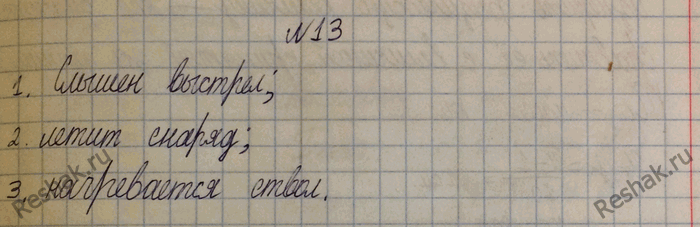 №13
1. Слышен выстрел;
2. летит снаряд;
3. нагревается ствол.
Reshak.ru
Reshak.ru